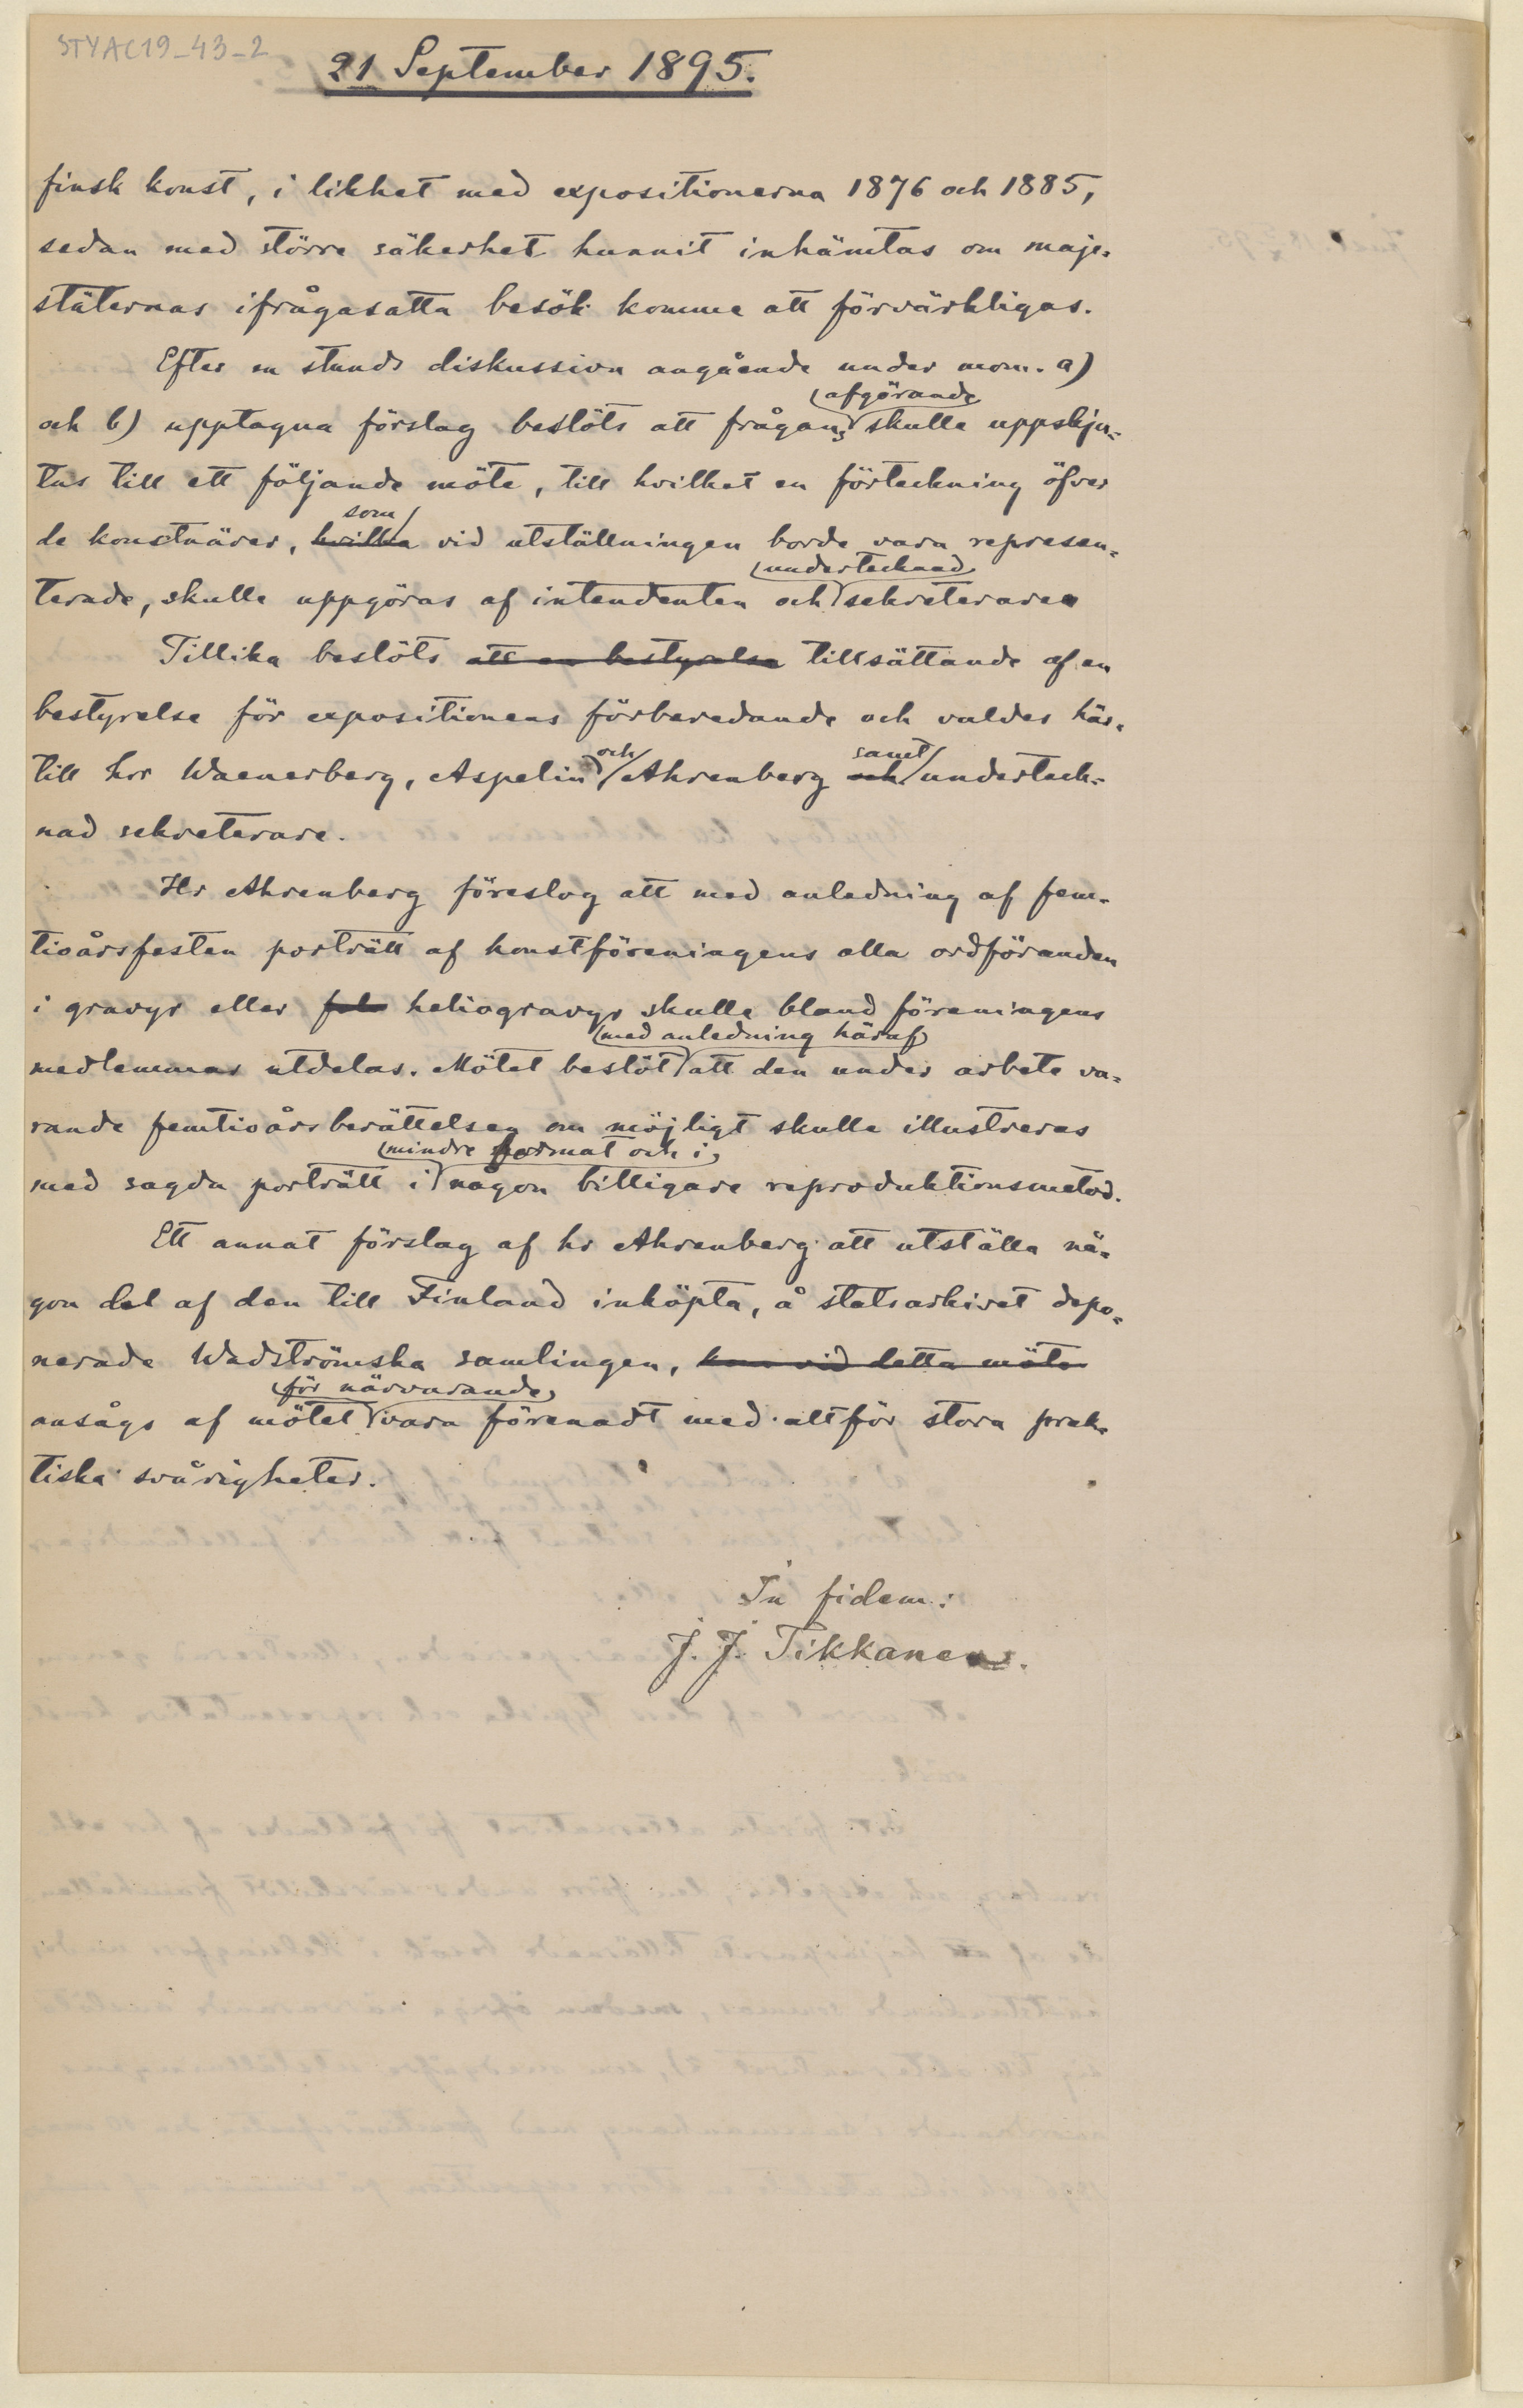 STYAC19_43_2
21 September 1895.
finsk konst, i likhet med expositionerna 1876 och 1885,
sedan med större säkerhet hunnit inhämtas om maje-
stäternas ifrågasatta besök komme att förvärkligas.
Efter en stunds diskussion angående under mom. a)
afgörande
och b) upptagna förslag beslöts att frågans skulle uppskju-
tas till ett följande möte, till hvilket en förteckning öfver
som
de konstnärer, hvilka vid utställningen borde vara represen-
undertecknad
terade, skulle uppgöras af intendenten och sekreterare
Tillika beslöts att en bestyrelse tillsättande af en
bestyrelse för expositionens förberedande och valdes här-
och samt
till hrr Waenerberg, Aspelin Ahrenberg och underteck-
nad sekreterare.
Hr Ahrenberg föreslog att med anledning af fem-
tioårsfesten porträtt af konstföreningens alla ordföranden
i gravyr eller heliogravyr skulle bland föreningens
med anledning häraf
medlemmar utdelas. Mötet beslöt att den under arbete va-
rande femtioårsberättelsen om möjligt skulle illustreras
mindre format och i
med sagda porträtt i någon billigare reproduktionsmetod.
Ett annat förslag af hr Ahrenberg att utställa nå-
gon del af den till Finland inköpta, å statsarkivet depo-
nerade Wadströmska samlingen, kan vid detta möte
för närvarande
ansågs af mötet vara förenadt med alltför stora prak-
tiska svårigheter.
In fidem:
J. J. Tikkanen.